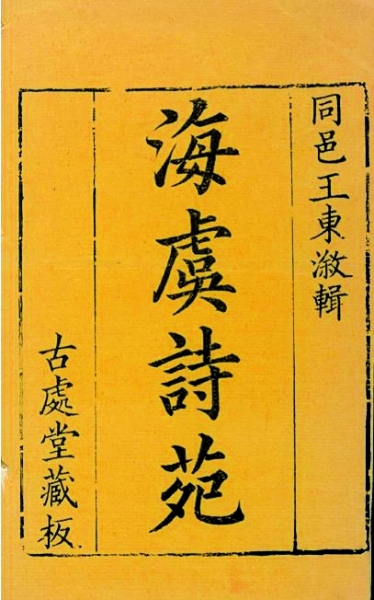 同邑王東漵輯
海虞詩苑
古處堂藏板